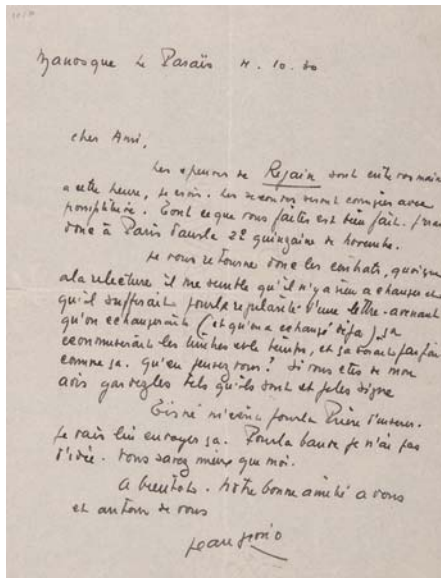 Manosque Le Paraïs 4.10.30
cher Ami,
Les épreuves de Regain sont entre vos mains
a cette heure, je crois. Les secondes seront corrigées avec
promptitude. Tout ce que vous faites est bien fait. J'irai
donc à Paris dans la 2e quinzaine de novembre.
Je vous retourne donc les contrats, quoique
a la relecture il me semble qu'il n'y a rien a changer et
qu'il suffirait pour la régularité d'une lettre-avenant
qu'on échangerait (et qu'on a échangé déja) ça
économiserait les timbres et le temps, et ça serait parfait
comme ça. Qu'en pensez vous? Si vous etes de mon
avis gardez les tels qu'ils sont et je les signe
m'écrit pour la Prière d'insérer.
Je vais lui envoyer ça. Pour la bande je n'ai pas
d'idée. Vous savez mieux que moi.
A bientot. Notre bonne amitié a vous
et autour de vous
Jean Giono